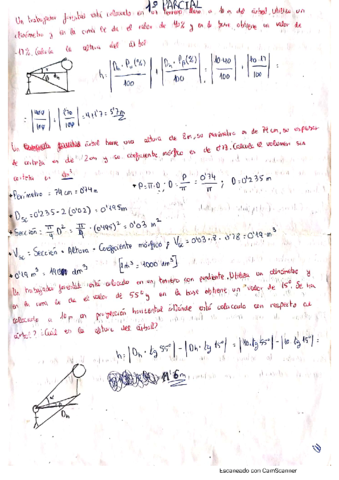 1º PARCIAL
Un trabajador forestal está colocado en un terreno llano a 10 m del árbol. Utiliza un
clinómetro y en la cima le da el valor de 40% y en la base obtiene un valor de
17%. Calcula la altura del árbol
h = | Dh · Pa(%) / 100 | + | Dh · Pp(%) / 100 | = | 10·40 / 100 | + | 10·17 / 100 | =
= | 400 / 100 | + | 170 / 100 | = 4 + 1'7 = 5'7 m
árbol tiene una altura de 8 m, su perímetro es de 74 cm, su espesor
de corteza es de 2 cm y su coeficiente mórfico es de 0'78. Calcula el volumen sin
corteza en dm³
• Perímetro = 74 cm = 0'74 m
• P = π·D ; D = P / π = 0'74 / π ; D = 0'235 m
• Dsc = 0'235 - 2 (0'02) = 0'195 m
• Sección: π/4 D² = π/4 · (0'195)² = 0'03 m²
• Vsc = Sección · Altura · Coeficiente mórfico ; Vsc = 0'03 · 8 · 0'78 = 0'19 m³
0'19 m³ = dm³ [1 m³ = 1000 dm³]
Un trabajador forestal está colocado en un terreno con pendiente. Utiliza un clinómetro y
en la cima le da el valor de 55º y en la base obtiene un valor de 15º. Se ha
colocado a 10 m en proyección horizontal ¿dónde está colocado con respecto al
árbol? ¿Cuál es la altura del árbol?
h = | Dh · tg 55º | - | Dh · tg 15º | = | 10 · tg 55º | - | 10 · tg 15º | =
Dh
Escaneado con CamScanner